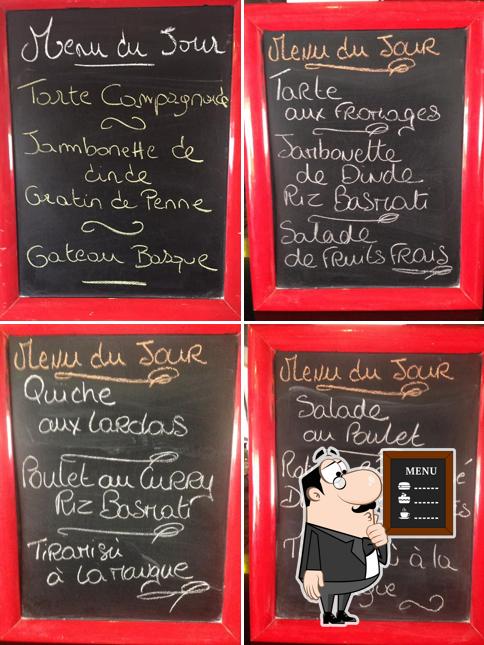 Menu du Jour
Tarte Campagnarde
Jambonette de
dinde
Gratin de Penne
Gateau Basque
Menu du Jour
Tarte
aux Fromages
Jambonette
de Dinde
Riz Basmati
Salade
de Fruits Frais
Menu du Jour
Quiche
aux Lardons
Poulet au Curry
Riz Basmati
Tiramisù
à la Mangue
Menu du Jour
Salade
au Poulet
MENU
à la